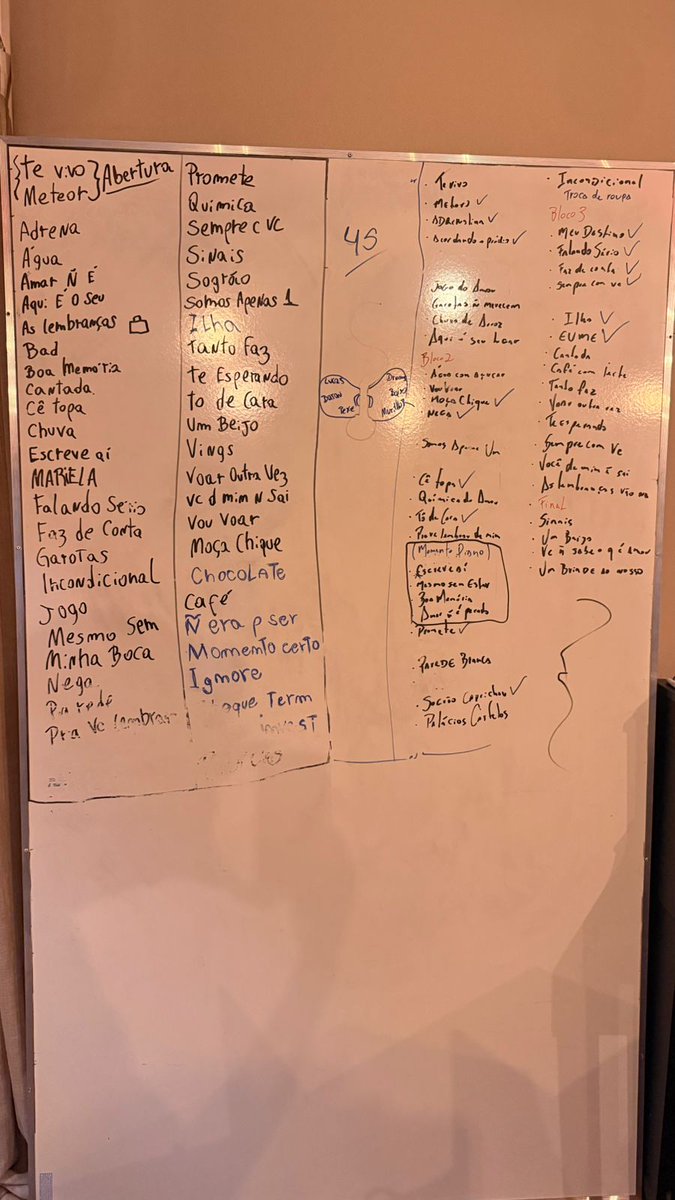 {Te vivo} Abertura
{Meteor}
Adrena
Água
Amar Ñ É
Aqui É O Seu
As lembranças
Bad
Boa Memória
Cantada
Cê topa
Chuva
Escreve aí
MARIELA
Falando Sério
Faz de Conta
Garotas
Incondicional
Jogo
Mesmo Sem
Minha Boca
Nega
Pra Vc lembrar
Promete
Química
Sempre c VC
Sinais
Sogrão
Somos Apenas 1
Ilha
Tanto faz
te Esperando
to de Cara
Um Beijo
Vings
Voar Outra Vez
vc d mim N Sai
Vou Voar
Moça Chique
Chocolate
Café
Ñ era p ser
Momento certo
Igmore
Term
45
Lucas
. Te vivo
. Meteoro ✓
. Adrenalina ✓
. Acordando o prédio ✓
Jogo do Amor
Garotas ñ merecem
Chuva de Arroz
. Aqui é seu lugar
Bloco 2
. Água com açucar
. Vou voar
. Moça Chique ✓
. Nega ✓
. Somos Apenas Um
. Cê topa ✓
. Química do Amor
. Tô de Cara ✓
. Pra vc lembrar de mim
(Momento Piano)
. Escreve aí
. Mesmo sem Estar
. Boa Memória
. Amor ñ é pecado
. Promete ✓
. Parede Branca
. Sogrão Caprichou ✓
. Palácios Castelos
. Incondicional
Troca de roupa
Bloco 3
. Meu Destino ✓
. Falando Sério ✓
. Faz de conta ✓
. Sempre com vc ✓
. Ilha ✓
. EU ME ✓
. Cantada
. Café com leite
. Tanto faz
. Voar outra vez
. Te esperando
. Sempre com Vc
. Você de mim ñ sai
. As lembranças vão na
. Final
. Sinais
. Um Beijo
. Vc ñ sabe o q é Amor
. Um Brinde ao nosso